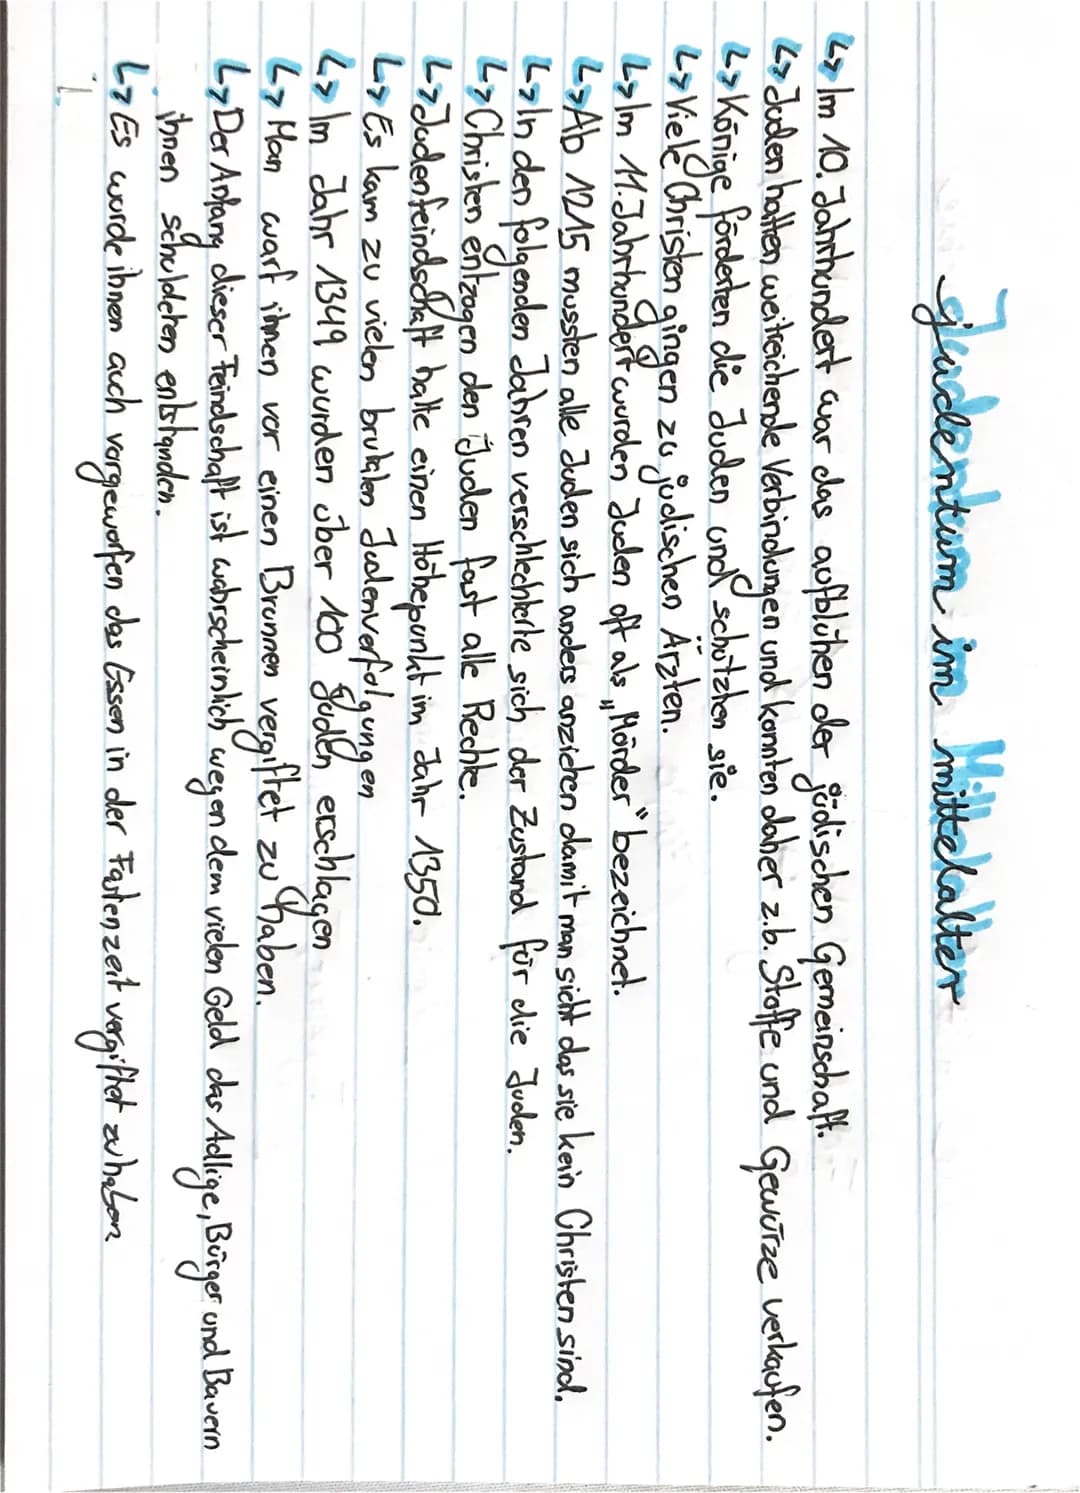 Judentum im Mittelalter
↳ Im 10. Jahrhundert war das aufblühen der jüdischen Gemeinschaft.
↳ Juden hatten weitreichende Verbindungen und konnten daher z.b. Stoffe und Gewürze verkaufen.
↳ Könige förderten die Juden und schützten sie.
↳ Viele Christen gingen zu jüdischen Ärzten.
↳ Im 11. Jahrhundert wurden Juden oft als „Mörder“ bezeichnet.
↳ Ab 1215 mussten alle Juden sich anders anziehen damit man sieht das sie kein Christen sind.
↳ In den folgenden Jahren verschlechterte sich der Zustand für die Juden.
↳ Christen entzogen den Juden fast alle Rechte.
↳ Judenfeindschaft hatte einen Höhepunkt im Jahr 1350.
↳ Es kam zu vielen brutalen Judenverfolgungen
↳ Im Jahr 1349 wurden über 100 Juden erschlagen
↳ Man warf ihnen vor einen Brunnen vergiftet zu haben.
↳ Der Anfang dieser Feindschaft ist wahrscheinlich wegen dem vielen Geld das Adlige, Bürger und Bauern
ihnen schuldeten entstanden.
↳ Es wurde ihnen auch vorgeworfen das Essen in der Fastenzeit vergiftet zu haben